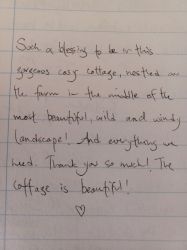 Such a blessing to be in this
gorgeous cosy cottage, nestled on
the farm in the middle of the
most beautiful, wild and windy
landscape! And everything we
need. Thank you so much! The
cottage is beautiful!
♡